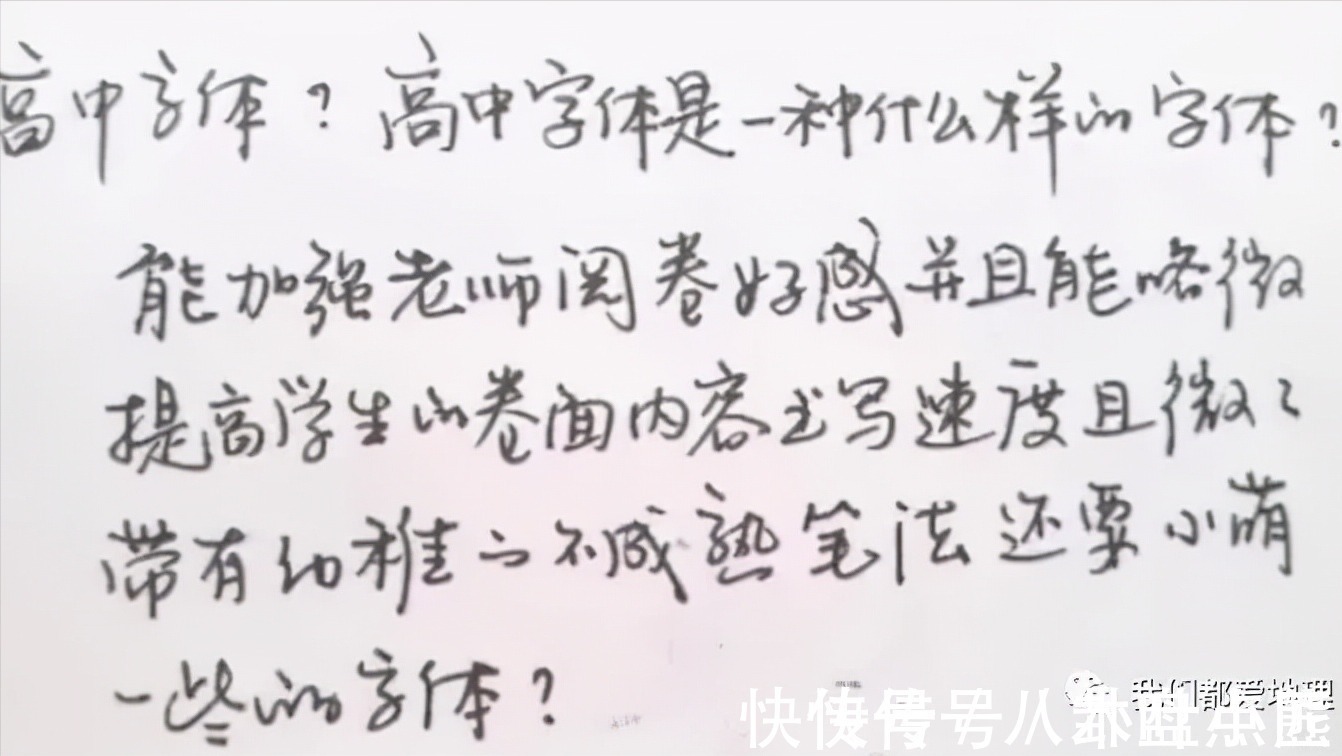 高中字体？高中字体是一种什么样的字体？
能加强老师阅卷好感并且能略微
提高学生的卷面内容书写速度且微微
带有幼稚的不成熟笔法还要小萌
一些的字体？
我们都爱地理
快传号